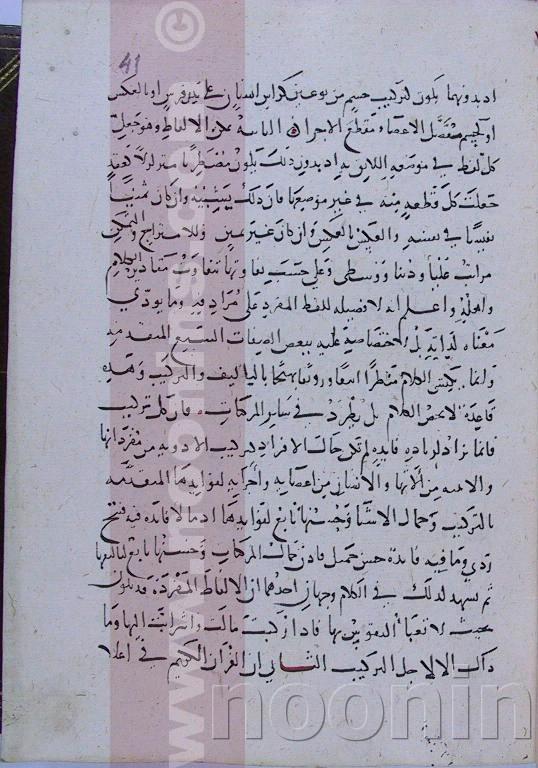 41
او بدونهما يكون لتركيب جسم من نوعين كراس انسان على بدن فرس او بالعكس
او كجسم متفصل الاعضاء متقطع الاجزاء الثامنة على الالفاظ وهو جعل
كل لفظ في موضعه اللائق به اذ بدون ذلك يكون مضطربا متزلزلا فقد
جعلت كل قطعة منه في غير موضعها فان ذلك يشينه وان كان ثمينا
نفيسا في نفسه والعكس بالعكس وان كان غير ثمين وللامتزاج والتمكن
مراتب عليا ودنيا ووسطى وعلى حسب تفاوتها تتفاوت مقادير الكلام
واهليه واعلم انه لا فضيله للفظ المفرد على مرادفه وما يودي
معناه لذاته بل لاختصاصه عليه ببعض الصفات السبع المتقدمه
وانما يكتسي الكلام منظرا اسعا ورونقا بهجا بالتاليف والتركيب وهذه
قاعدة لا تخص الكلام بل تطرد في سائر المركبات فان كل تركيب
فانما يراد لزياده فايده لم تكن حالة الافراد كتركيب الادويه من مفرداتها
والابنيه من الاتها والانسان من اعضايه واجزايه لفوايدها المتقدمه
بالتركيب وجمال الاشيا وحسنها تابع لفوايدها اذ ما لا فايده فيه قبيح
ردي وما فيه فايدة حسن جميل فاذن جمال المركبات وحسنها تابع لتاليفها
ثم يشهد لذلك في الكلام وجهان احدهما ان الالفاظ المفردة قد تكون
بحيث لا تعبأ النفوس بها فاذا ركبت مالت واشرابت اليها وما
ذاك الا لاجل التركيب الثاني ان القران الكريم في اعلا
noonin
www.noonims.com ©